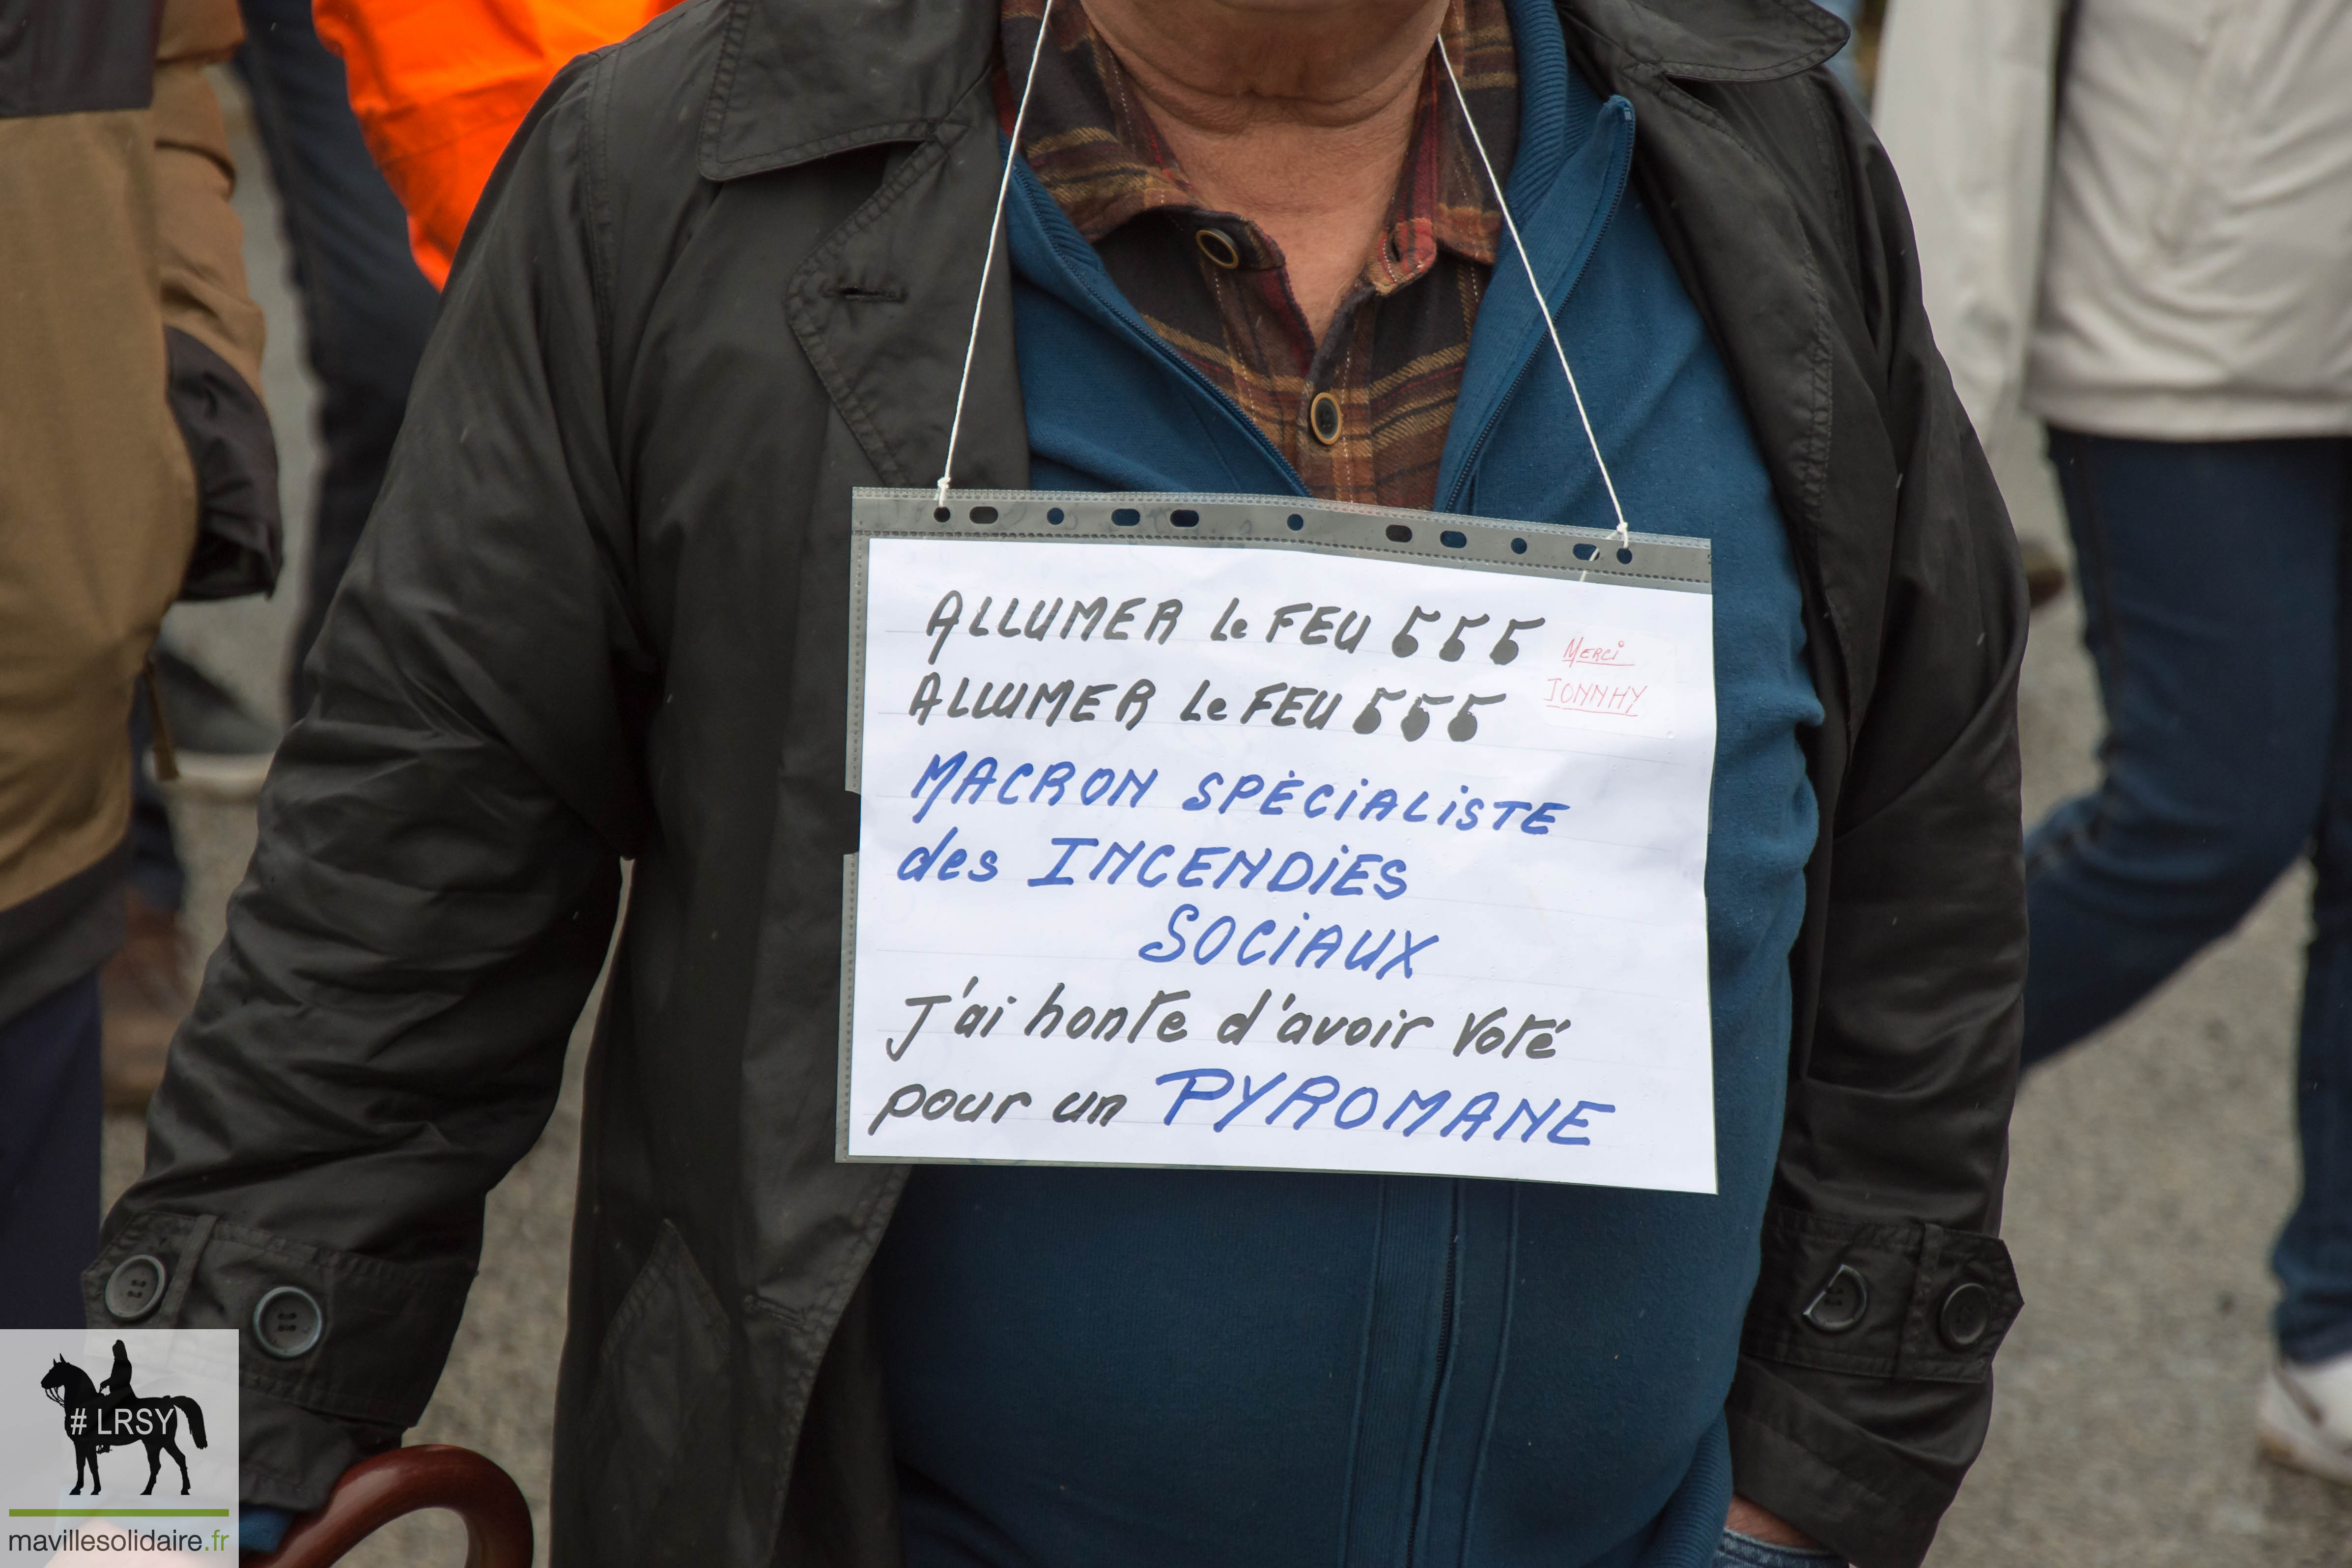 ALLUMER Le FEU
ALLUMER Le FEU
Merci
JONNHY
MACRON SPÉCIALISTE
des INCENDIES
SOCIAUX
J'ai honte d'avoir Voté
pour un PYROMANE
# LRSY
mavillesolidaire.fr